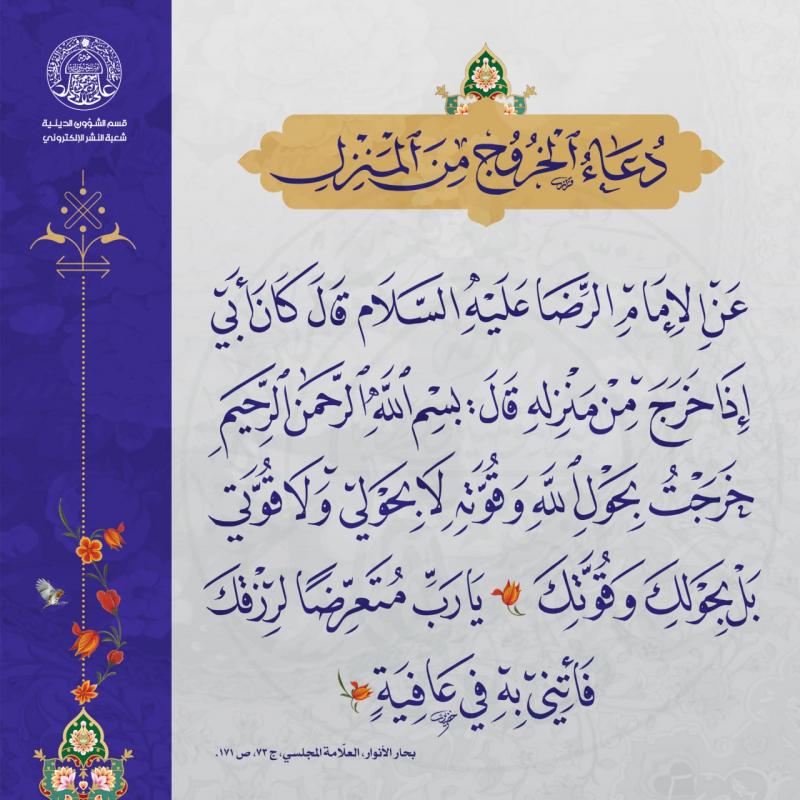 قسم الشؤون الدينية
شعبة النشر الإلكتروني
دُعَاءُ ٱلْخُرُوجِ مِنَ ٱلْمَنْزِلِ
عَنِ الإِمَامِ الرِّضَا عَلَيْهِ السَّلَام قَالَ كَانَ أَبِي
إِذَا خَرَجَ مِنْ مَنْزِلِهِ قَالَ: بِسْمِ ٱللَّهِ ٱلرَّحْمَنِ ٱلرَّحِيمِ
خَرَجْتُ بِحَوْلِ ٱللَّهِ وَقُوَّتِهِ لَا بِحَوْلِي وَلَا قُوَّتِي
بَلْ بِحَوْلِكَ وَقُوَّتِكَ يَا رَبِّ مُتَعَرِّضًا لِرِزْقِكَ
فَأْتِنِي بِهِ فِي عَافِيَةٍ
بحار الأنوار، العلّامة المجلسي، ج ٧٣، ص ١٧١.